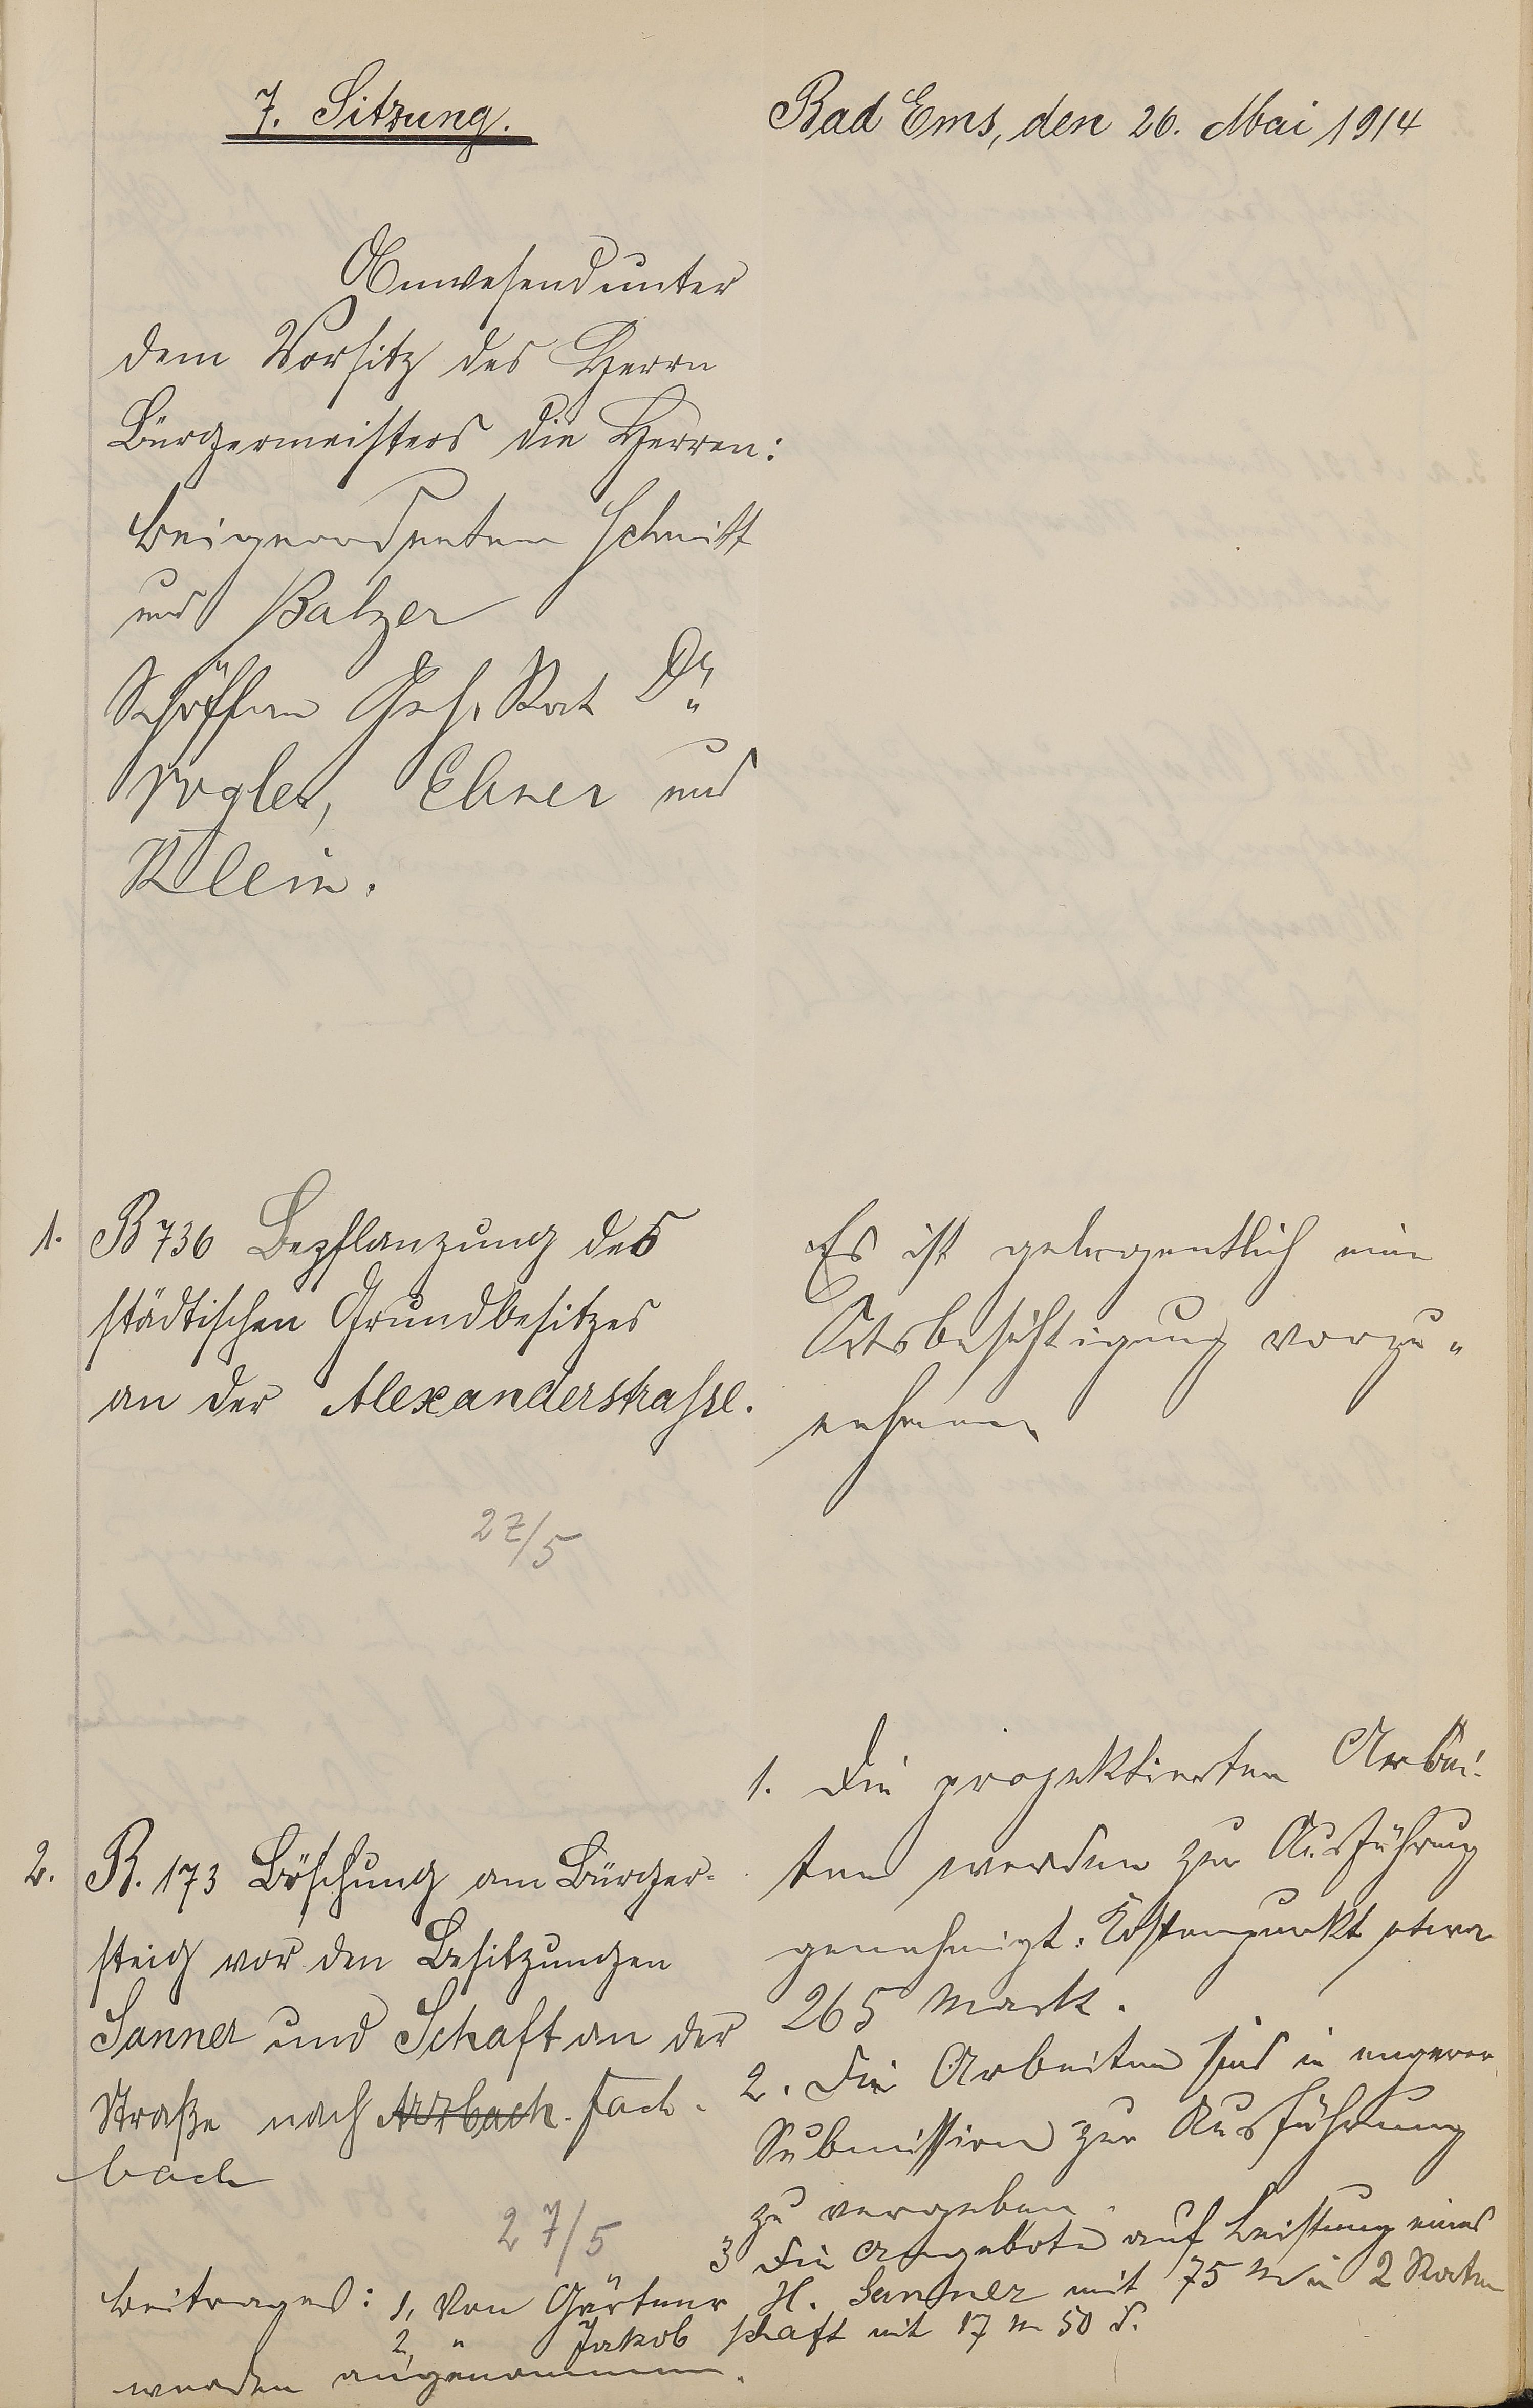 7. Sitzung.
Bad Ems, den 26. Mai 1914
Anwesend unter
dem Vorsitz des Herrn
Bürgermeisters die Herren:
Beigeordneten Schmitt
und Balzer
Schöffen Geh. Rat Dr.
Vogler, Ebner und
Klein.
1. B 736 Bepflanzung des
städtischen Grundbesitzes
an der Alexanderstrasse.
27/5
Es ist gelegentlich eine
Ortsbesichtigung vorzu-
nehmen
2. B. 173 Böschung am Bürger-
steig vor den Besitzungen
Sanner und Schaft an der
Straße nach Arzbach. Fach-
bach
27/5
1. Die projektierten Arbei-
ten werden zur Ausführung
genehmigt. Kostenpunkt etwa
265 Mark.
2. Die Arbeiten sind in engerer
Submission zur Ausführung
zu vergeben.
3 Die Angebote auf Leistung eines
Beitrages: 1, Von Gärtner H. Sanner mit 75 M in 2 Raten
2, " Jakob Schaft mit 17 M 50 d.
werden angenommen.